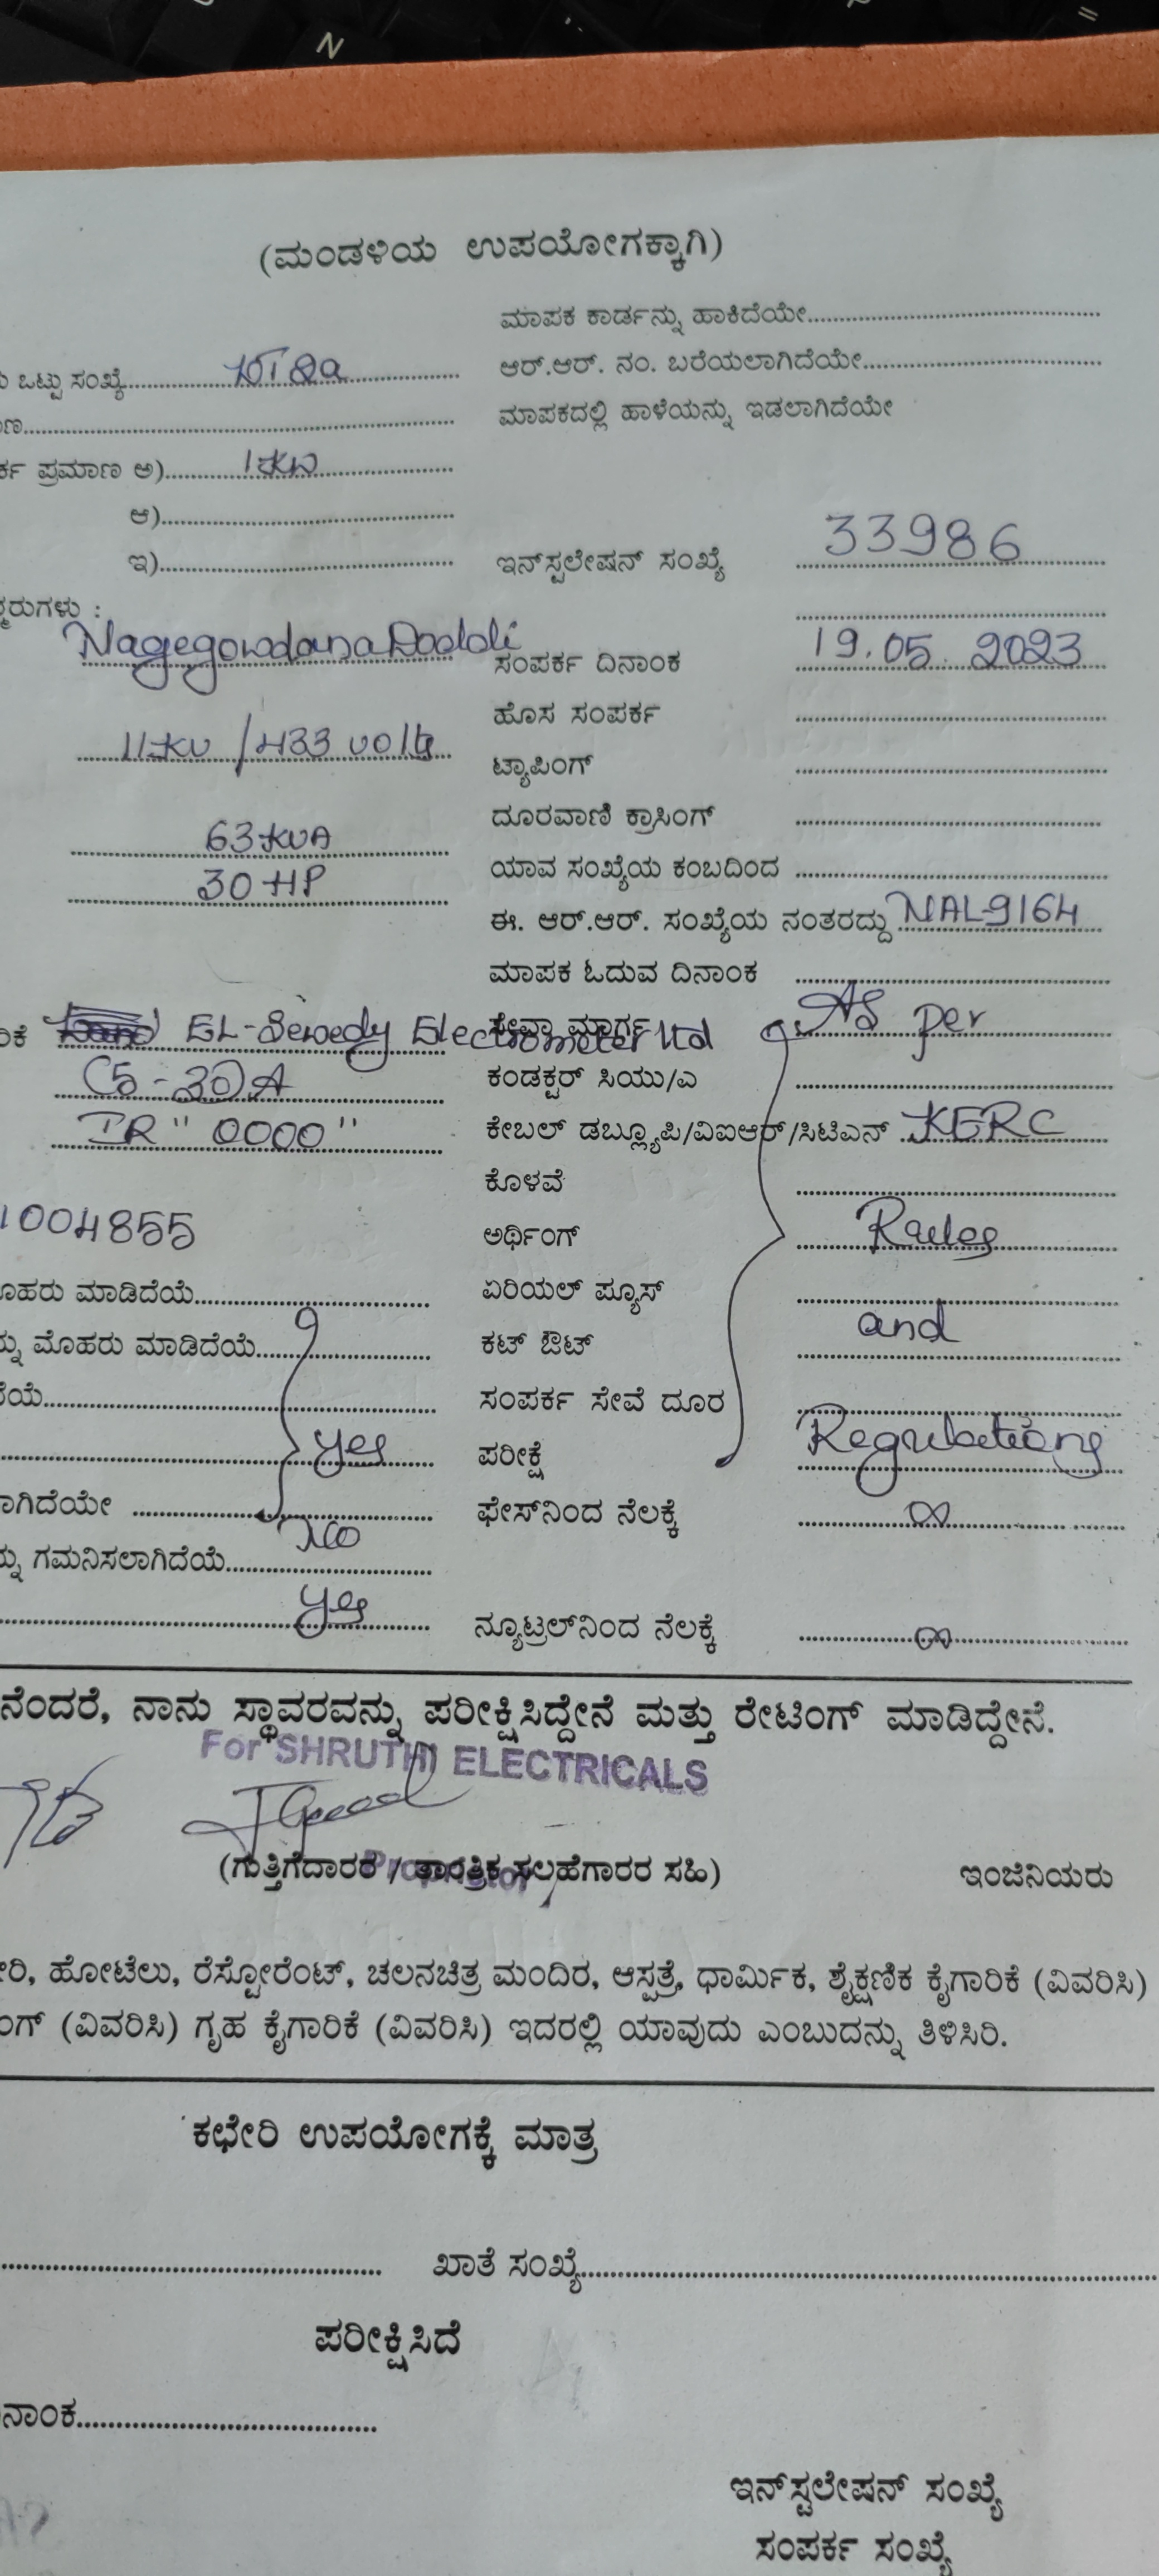 N
=
(ಮಂಡಳಿಯ ಉಪಯೋಗಕ್ಕಾಗಿ)
ಮಾಪಕ ಕಾರ್ಡನ್ನು ಹಾಕಿದೆಯೇ
ಒಟ್ಟು ಸಂಖ್ಯೆ
ಆರ್.ಆರ್. ನಂ. ಬರೆಯಲಾಗಿದೆಯೇ
ಮಾಪಕದಲ್ಲಿ ಹಾಳೆಯನ್ನು ಇಡಲಾಗಿದೆಯೇ
ಪ್ರಮಾಣ ಅ) 1KW
ಆ)
ಇ) ಇನ್‌ಸ್ಟಲೇಷನ್ ಸಂಖ್ಯೆ 33986
NagegowdanaDoddi
ಸಂಪರ್ಕ ದಿನಾಂಕ 19.05.2023
ಹೊಸ ಸಂಪರ್ಕ
11KV/433 volts ಟ್ಯಾಪಿಂಗ್
ದೂರವಾಣಿ ಕ್ರಾಸಿಂಗ್
63KVA
ಯಾವ ಸಂಖ್ಯೆಯ ಕಂಬದಿಂದ
30HP
ಈ. ಆರ್.ಆರ್. ಸಂಖ್ಯೆಯ ನಂತರದ್ದು NAL9164
ಮಾಪಕ ಓದುವ ದಿನಾಂಕ
EL-Sewedy Electrometer Ltd ಸೇವಾ ಮಾರ್ಗ As per
(5-30)A ಕಂಡಕ್ಟರ್ ಸಿಯು/ಎ
IR "0000" ಕೇಬಲ್ ಡಬ್ಲ್ಯೂಪಿ/ವಿಐಆರ್/ಸಿಟಿಎನ್ KERC
ಕೊಳವೆ
1004855 ಅರ್ಥಿಂಗ್ Rules
ಮಾಡಿದೆಯೆ ಏರಿಯಲ್ ಫ್ಯೂಸ್
ಮೊಹರು ಮಾಡಿದೆಯೆ ಕಟ್ ಔಟ್ and
ಸಂಪರ್ಕ ಸೇವೆ ದೂರ
yes ಪರೀಕ್ಷೆ Regulations
ಫೇಸ್‌ನಿಂದ ನೆಲಕ್ಕೆ ∞
No
ಗಮನಿಸಲಾಗಿದೆಯೆ
yes ನ್ಯೂಟ್ರಲ್‌ನಿಂದ ನೆಲಕ್ಕೆ ∞
ನೆಂದರೆ, ನಾನು ಸ್ಥಾವರವನ್ನು ಪರೀಕ್ಷಿಸಿದ್ದೇನೆ ಮತ್ತು ರೇಟಿಂಗ್ ಮಾಡಿದ್ದೇನೆ.
For SHRUTHI ELECTRICALS
Proprietor
(ಗುತ್ತಿಗೆದಾರರ / ತಾಂತ್ರಿಕ ಸಲಹೆಗಾರರ ಸಹಿ) ಇಂಜಿನಿಯರು
ಹೋಟೆಲು, ರೆಸ್ಟೋರೆಂಟ್, ಚಲನಚಿತ್ರ ಮಂದಿರ, ಆಸ್ಪತ್ರೆ, ಧಾರ್ಮಿಕ, ಶೈಕ್ಷಣಿಕ ಕೈಗಾರಿಕೆ (ವಿವರಿಸಿ)
(ವಿವರಿಸಿ) ಗೃಹ ಕೈಗಾರಿಕೆ (ವಿವರಿಸಿ) ಇದರಲ್ಲಿ ಯಾವುದು ಎಂಬುದನ್ನು ತಿಳಿಸಿರಿ.
ಕಛೇರಿ ಉಪಯೋಗಕ್ಕೆ ಮಾತ್ರ
ಖಾತೆ ಸಂಖ್ಯೆ
ಪರೀಕ್ಷಿಸಿದೆ
ನಾಂಕ
ಇನ್‌ಸ್ಟಲೇಷನ್ ಸಂಖ್ಯೆ
ಸಂಪರ್ಕ ಸಂಖ್ಯೆ